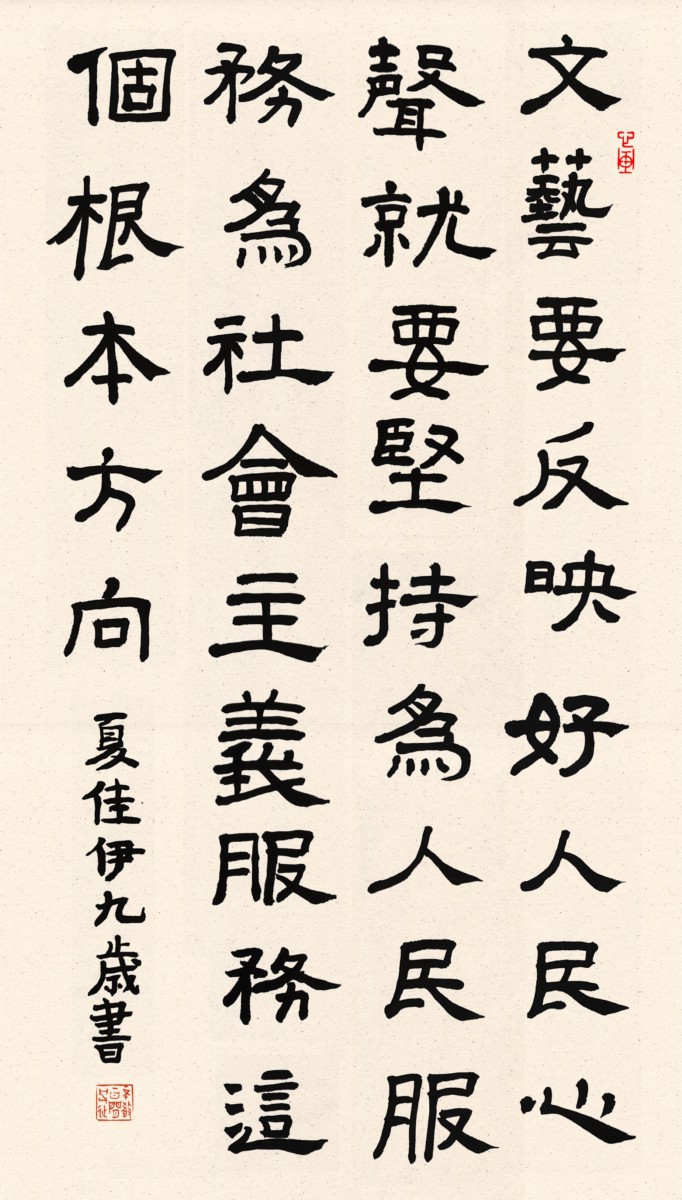 文藝要反映好人民心
聲就要堅持為人民服
務為社會主義服務這
個根本方向
夏佳伊九歲書